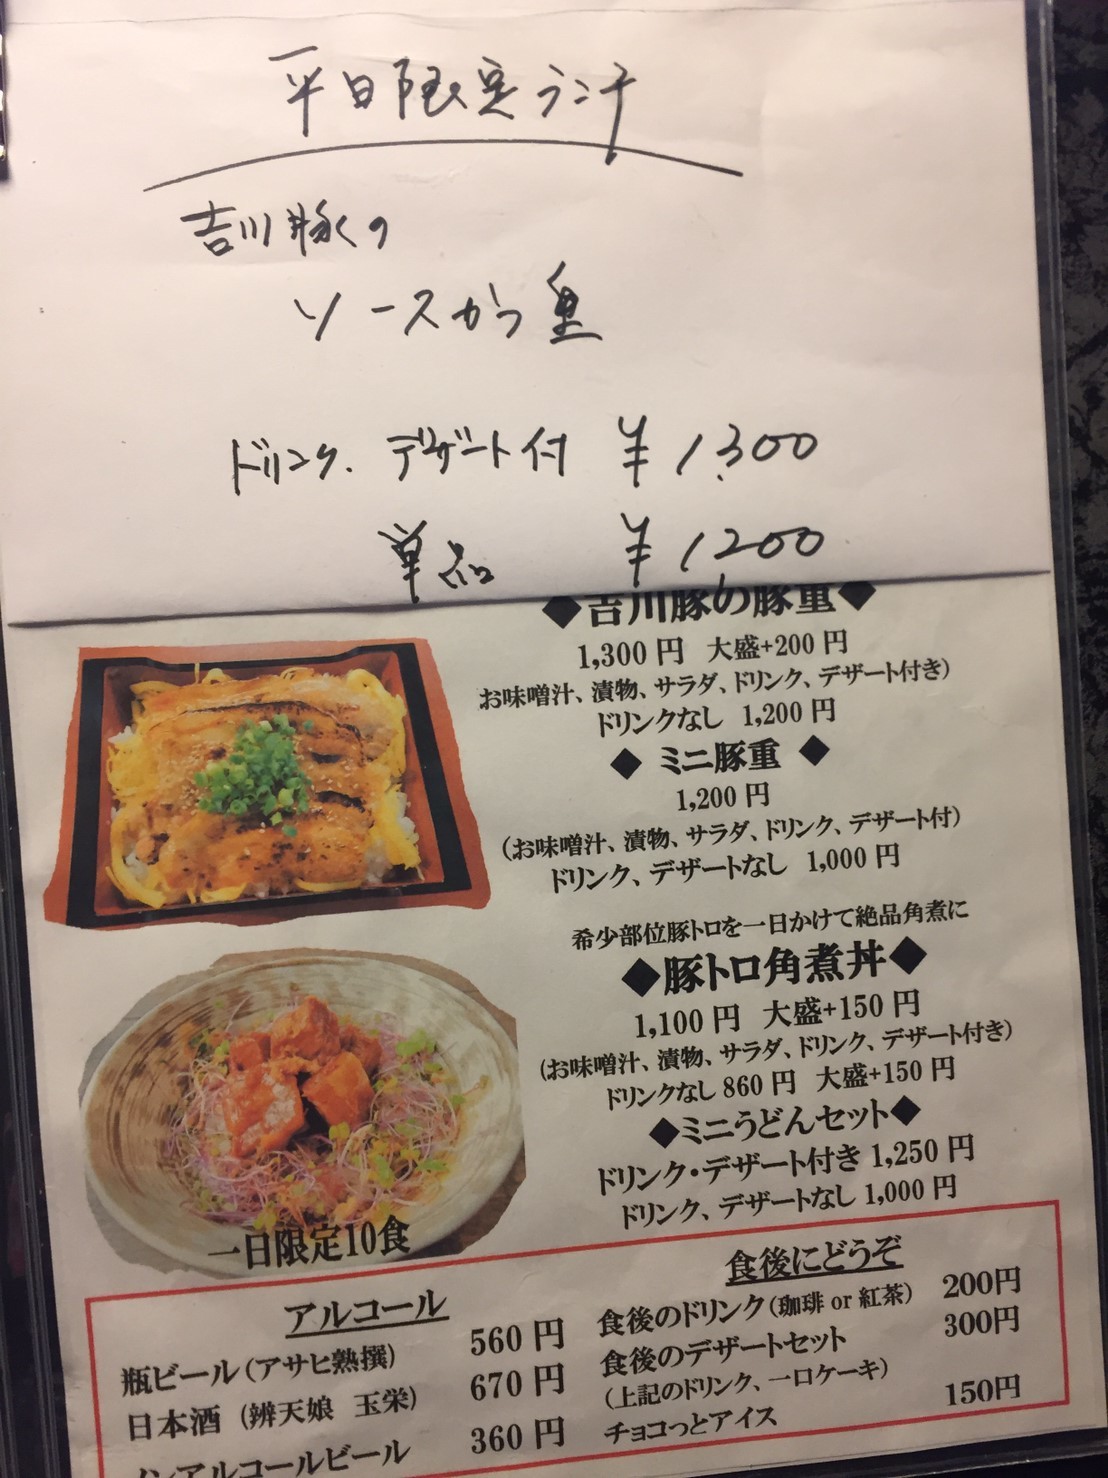 平日限定ランチ
吉川豚の
ソースかつ重
ドリンク、デザート付 ¥1,300
単品 ¥1200
◆吉川豚の豚重◆
1,300円 大盛+200円
お味噌汁、漬物、サラダ、ドリンク、デザート付き)
ドリンクなし 1,200円
◆ ミニ豚重 ◆
1,200円
(お味噌汁、漬物、サラダ、ドリンク、デザート付)
ドリンク、デザートなし 1,000円
希少部位豚トロを一日かけて絶品角煮に
◆豚トロ角煮丼◆
1,100円 大盛+150円
(お味噌汁、漬物、サラダ、ドリンク、デザート付き)
ドリンクなし 860円 大盛+150円
◆ミニうどんセット◆
ドリンク・デザート付き 1,250円
ドリンク、デザートなし 1,000円
一日限定10食
アルコール
瓶ビール(アサヒ熟撰) 560円
日本酒 (辨天娘 玉栄) 670円
ノンアルコールビール 360円
食後にどうぞ
食後のドリンク(珈琲 or 紅茶) 200円
食後のデザートセット 300円
(上記のドリンク、一口ケーキ)
チョコっとアイス 150円